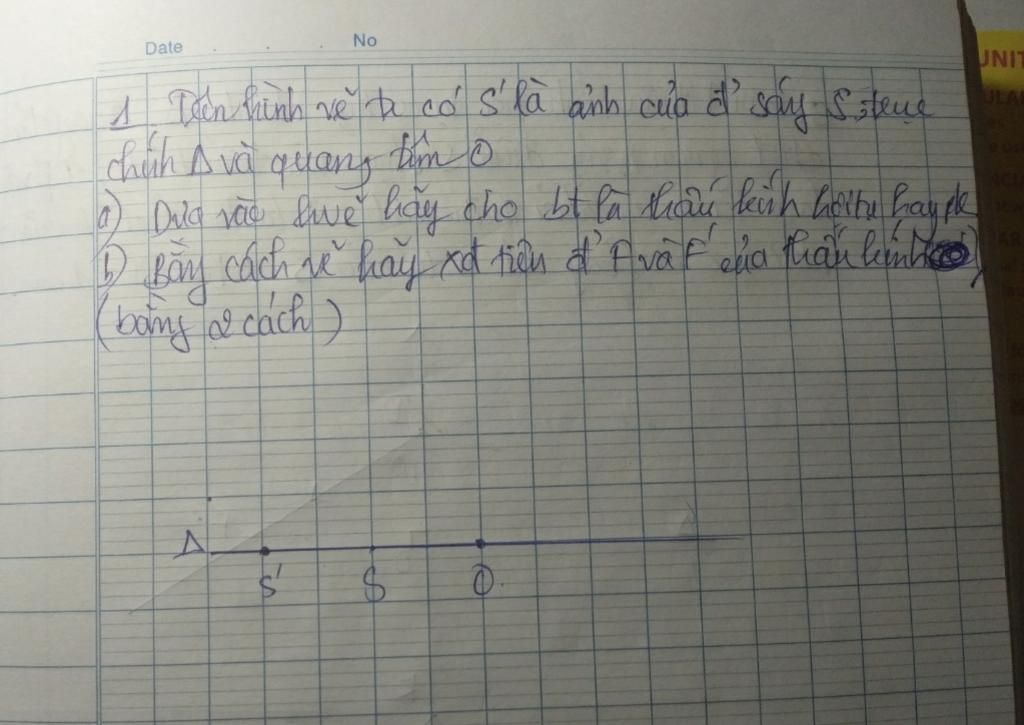 Date . . . No
UNIT
1 Trên hình vẽ ta có S' là ảnh của đ' sáng S, trục
chính Δ và quang tâm O
a) Dựa vào hvẽ hãy cho bt là thấu kính hội tụ hay pk
b) Bằng cách vẽ hãy xđ tiêu đ' F và F' của thấu kính
(bằng 2 cách)
Δ
S' S O